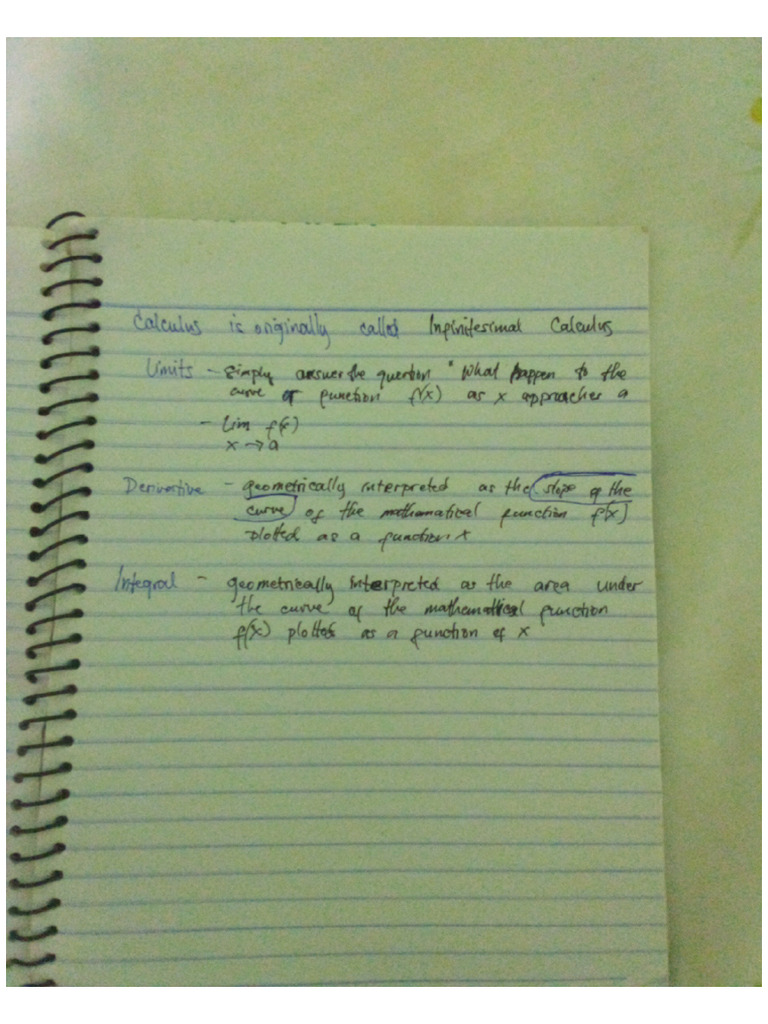 Calculus is originally called Infinitesimal Calculus
Limits - Simply answer the question " What happen to the
curve or function f(x) as x approaches a
- Lim f(x)
x → a
Derivative - geometrically interpreted as the slope of the
curve of the mathematical function f(x)
plotted as a function x
Integral - geometrically interpreted as the area under
the curve of the mathematical function
f(x) plotted as a function of x